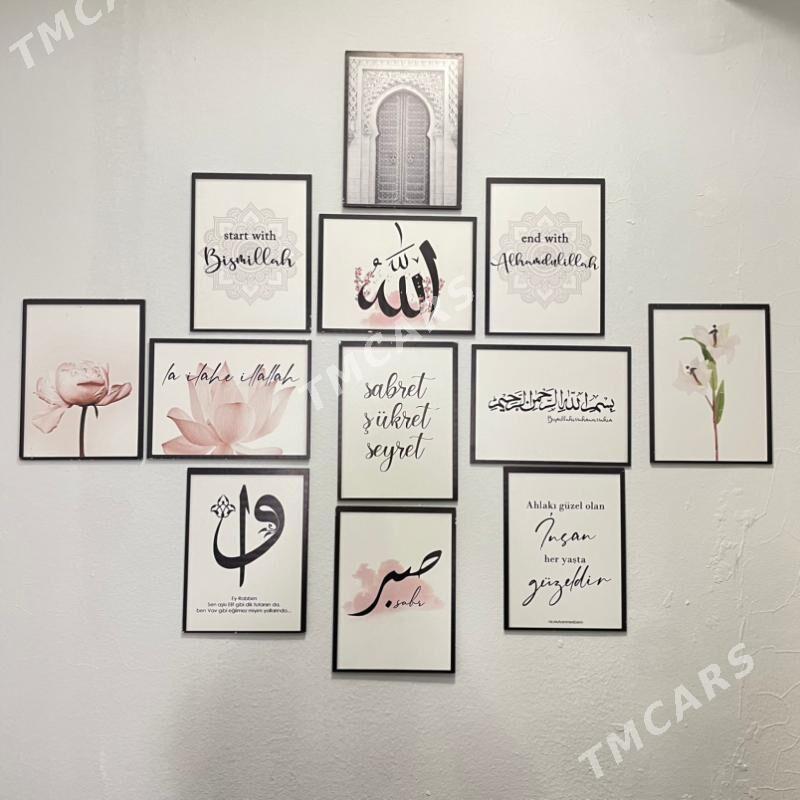 TMCARS
start with
Bismillah
الله
end with
Alhamdulillah
la ilahe illallah
sabret
şükret
seyret
بسم الله الرحمن الرحيم
Bismillahirrahmanirrahim
و
Ey Rabbim
Sen aşkı Elif gibi dik tutanın da,
ben Vav gibi eğilmez miyim yollarında...
صبر
sabr
Ahlakı güzel olan
İnsan
her yaşta
güzeldir
TMCARS
TMCARS